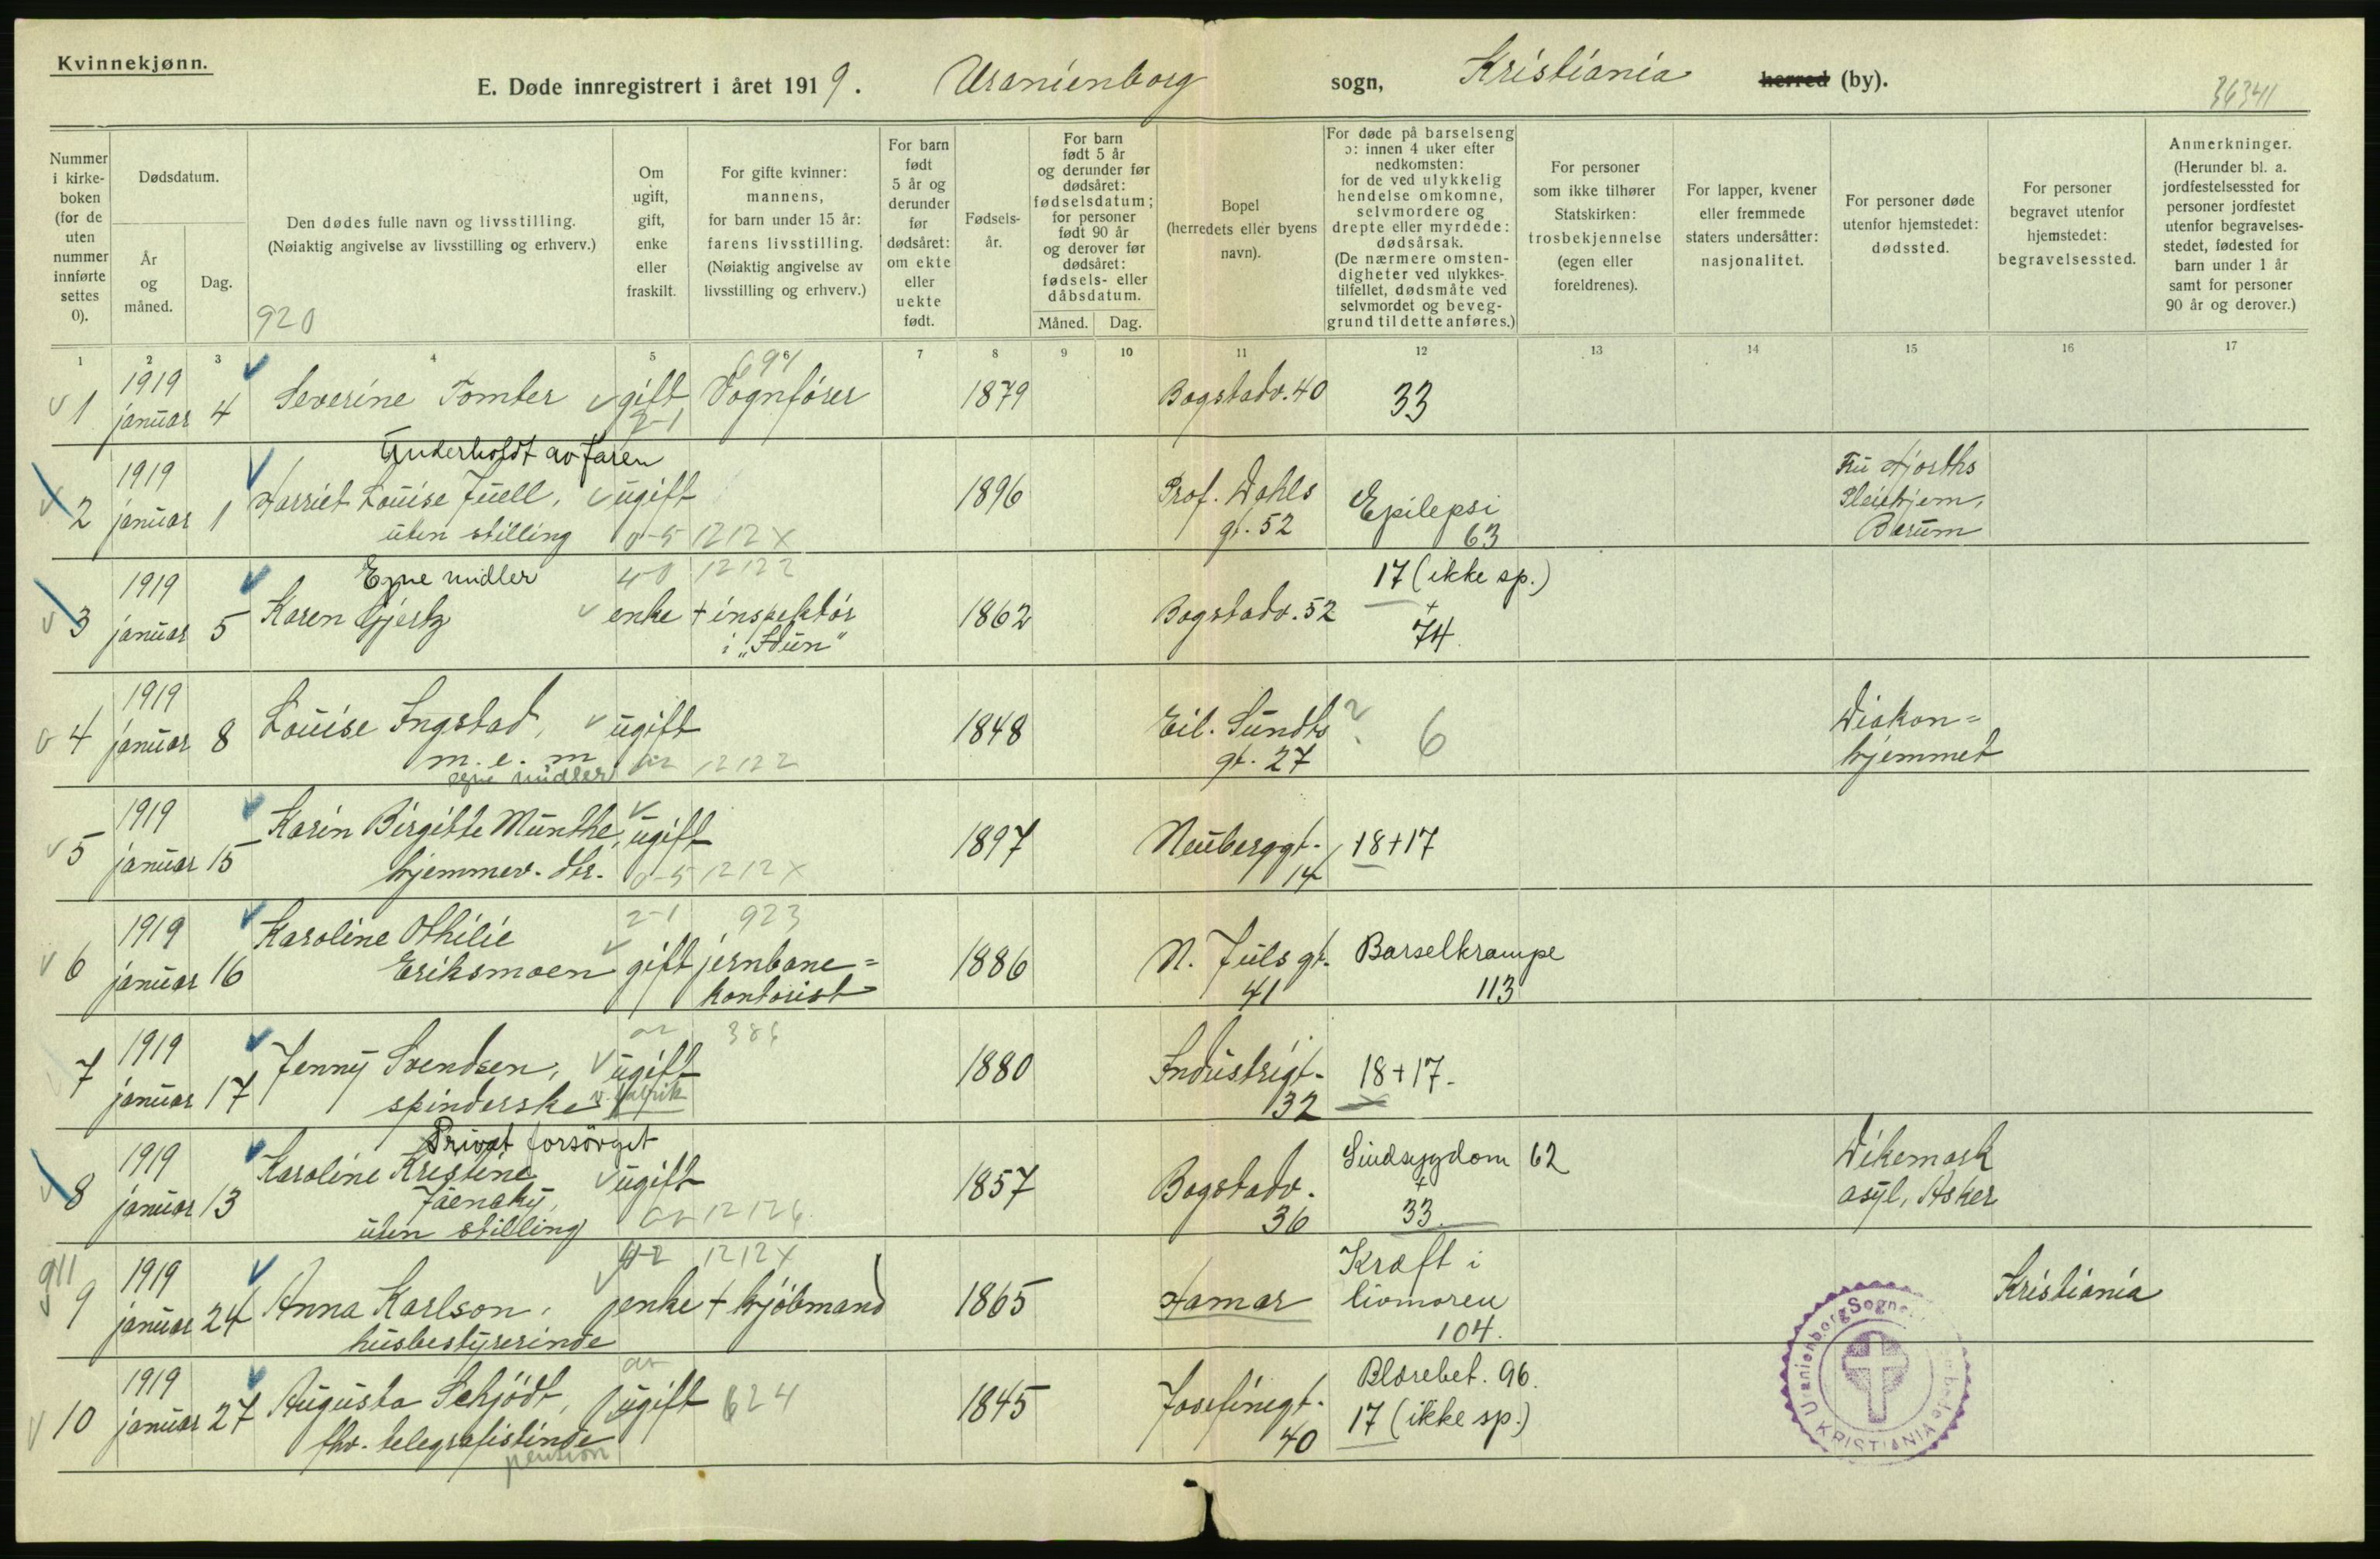 Kvinnekjønn.
E. Døde innregistrert i året 1919. Uranienborg sogn, Kristiania herred (by).
36341
Nummer i kirkeboken (for de uten nummer innførte settes 0).
Dødsdatum.
År og måned.
Dag.
Den dødes fulle navn og livsstilling.
(Nøiaktig angivelse av livsstilling og erhverv.)
920
Om ugift, gift, enke eller fraskilt.
For gifte kvinner: mannens, for barn under 15 år: farens livsstilling. (Nøiaktig angivelse av livsstilling og erhverv.)
For barn født 5 år og derunder før dødsåret: om ekte eller uekte født.
Fødselsår.
For barn født 5 år og derunder før dødsåret: fødselsdatum; for personer født 90 år og derover før dødsåret: fødsels- eller dåbsdatum.
Måned. Dag.
Bopel (herredets eller byens navn).
For døde på barselseng ɔ: innen 4 uker efter nedkomsten: for de ved ulykkelig hendelse omkomne, selvmordere og drepte eller myrdede: dødsårsak. (De nærmere omstendigheter ved ulykkestilfellet, dødsmåte ved selvmordet og beveggrund til dette anføres.)
For personer som ikke tilhører Statskirken: trosbekjennelse (egen eller foreldrenes).
For lapper, kvener eller fremmede staters undersåtter: nasjonalitet.
For personer døde utenfor hjemstedet: dødssted.
For personer begravet utenfor hjemstedet: begravelsessted.
Anmerkninger. (Herunder bl. a. jordfestelsessted for personer jordfestet utenfor begravelsesstedet, fødested for barn under 1 år samt for personer 90 år og derover.)
1 2 3 4 5 6 7 8 9 10 11 12 13 14 15 16 17
1 1919 januar 4 Severine Tomter gift Vognfører 1879 Bogstadv. 40 33
2-1
Underholdt av faren
2 1919 januar 1 Harriet Louise Juell, ugift 1896 Prof. Dahls gt. 52 Epilepsi 63 Fru Hjorths Pleiehjem, Bærum
uten stilling 0-5 1212X
Egne midler 40 12122
3 1919 januar 5 Karen Gjertz enke + inspektör i "Hun" 1862 Bogstadv. 52 17 (ikke sp.) + 74
4 1919 januar 8 Louise Ingstad, ugift 1848 Eil. Sundts gt. 27 ? 6 Diakonhjemmet
m. e. m 12122
egne midler
5 1919 januar 15 Karin Birgitte Munthe, ugift 1897 Neuberggt. 14 18+17
hjemmev. dtr. 0-5 1212X
2-1 923
6 1919 januar 16 Karoline Othilie Eriksmoen gift jernbanekontorist 1886 N. Juls gt. 41 Barselkrampe 113
386
7 1919 januar 17 Jenny Svendsen, ugift 1880 Industrigt. 32 18+17
spinderske v. fabrik
Privat forsörget
8 1919 januar 13 Karoline Kristine Jaensky, ugift 1857 Bogstadv. 36 Sindsygdom 62 + 33 Dikemark asyl, Asker
uten stilling 12126
1212X
911
9 1919 januar 24 Anna Karlson, enke + kjöbmand 1865 Hamar Kræft i livmoren 104. Kristiania
husbestyrerinde
10 1919 januar 27 Augusta Schjödt, ugift 624 1845 Josefinegt. 40 Blærebet. 96. 17 (ikke sp.)
fhv. telegrafistinde
pension
Uranienborg Sogne
KRISTIANIA